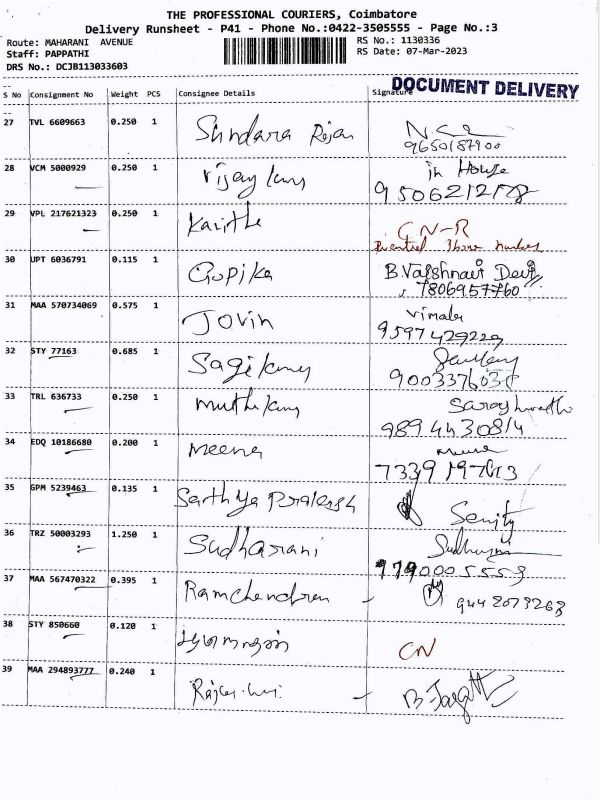 THE PROFESSIONAL COURIERS, Coimbatore
Delivery Runsheet - P41 - Phone No.:0422-3505555 - Page No.:3
Route: MAHARANI AVENUE
RS No.: 1130336
Staff: PAPPATHI
RS Date: 07-Mar-2023
DRS No.: DCJB113033603
DOCUMENT DELIVERY
S No Consignment No Weight PCS Consignee Details Signature
27 TVL 6609663 0.250 1 Sundara Rajan
9650187900
28 VCM 5000929 0.250 1 Vijay in House
9506212178
29 VPL 217621323 0.250 1 CN-R
30 UPT 6036791 0.115 1 Gopika B. Vaishnavi Devi
7806957760
31 MAA 570734069 0.575 1 Jovin Vimala
9597429229
32 STY 77163 0.685 1
33 TRL 636733 0.250 1
9894430814
34 EDQ 10186680 0.200 1 meena
7339197613
35 GPM 5239463 0.135 1
36 TRZ 50003293 1.250 1 Sudharani
9790005553
37 MAA 567470322 0.395 1 Ramchendren
9442073263
38 STY 850660 0.120 1 CN
39 MAA 294893777 0.240 1